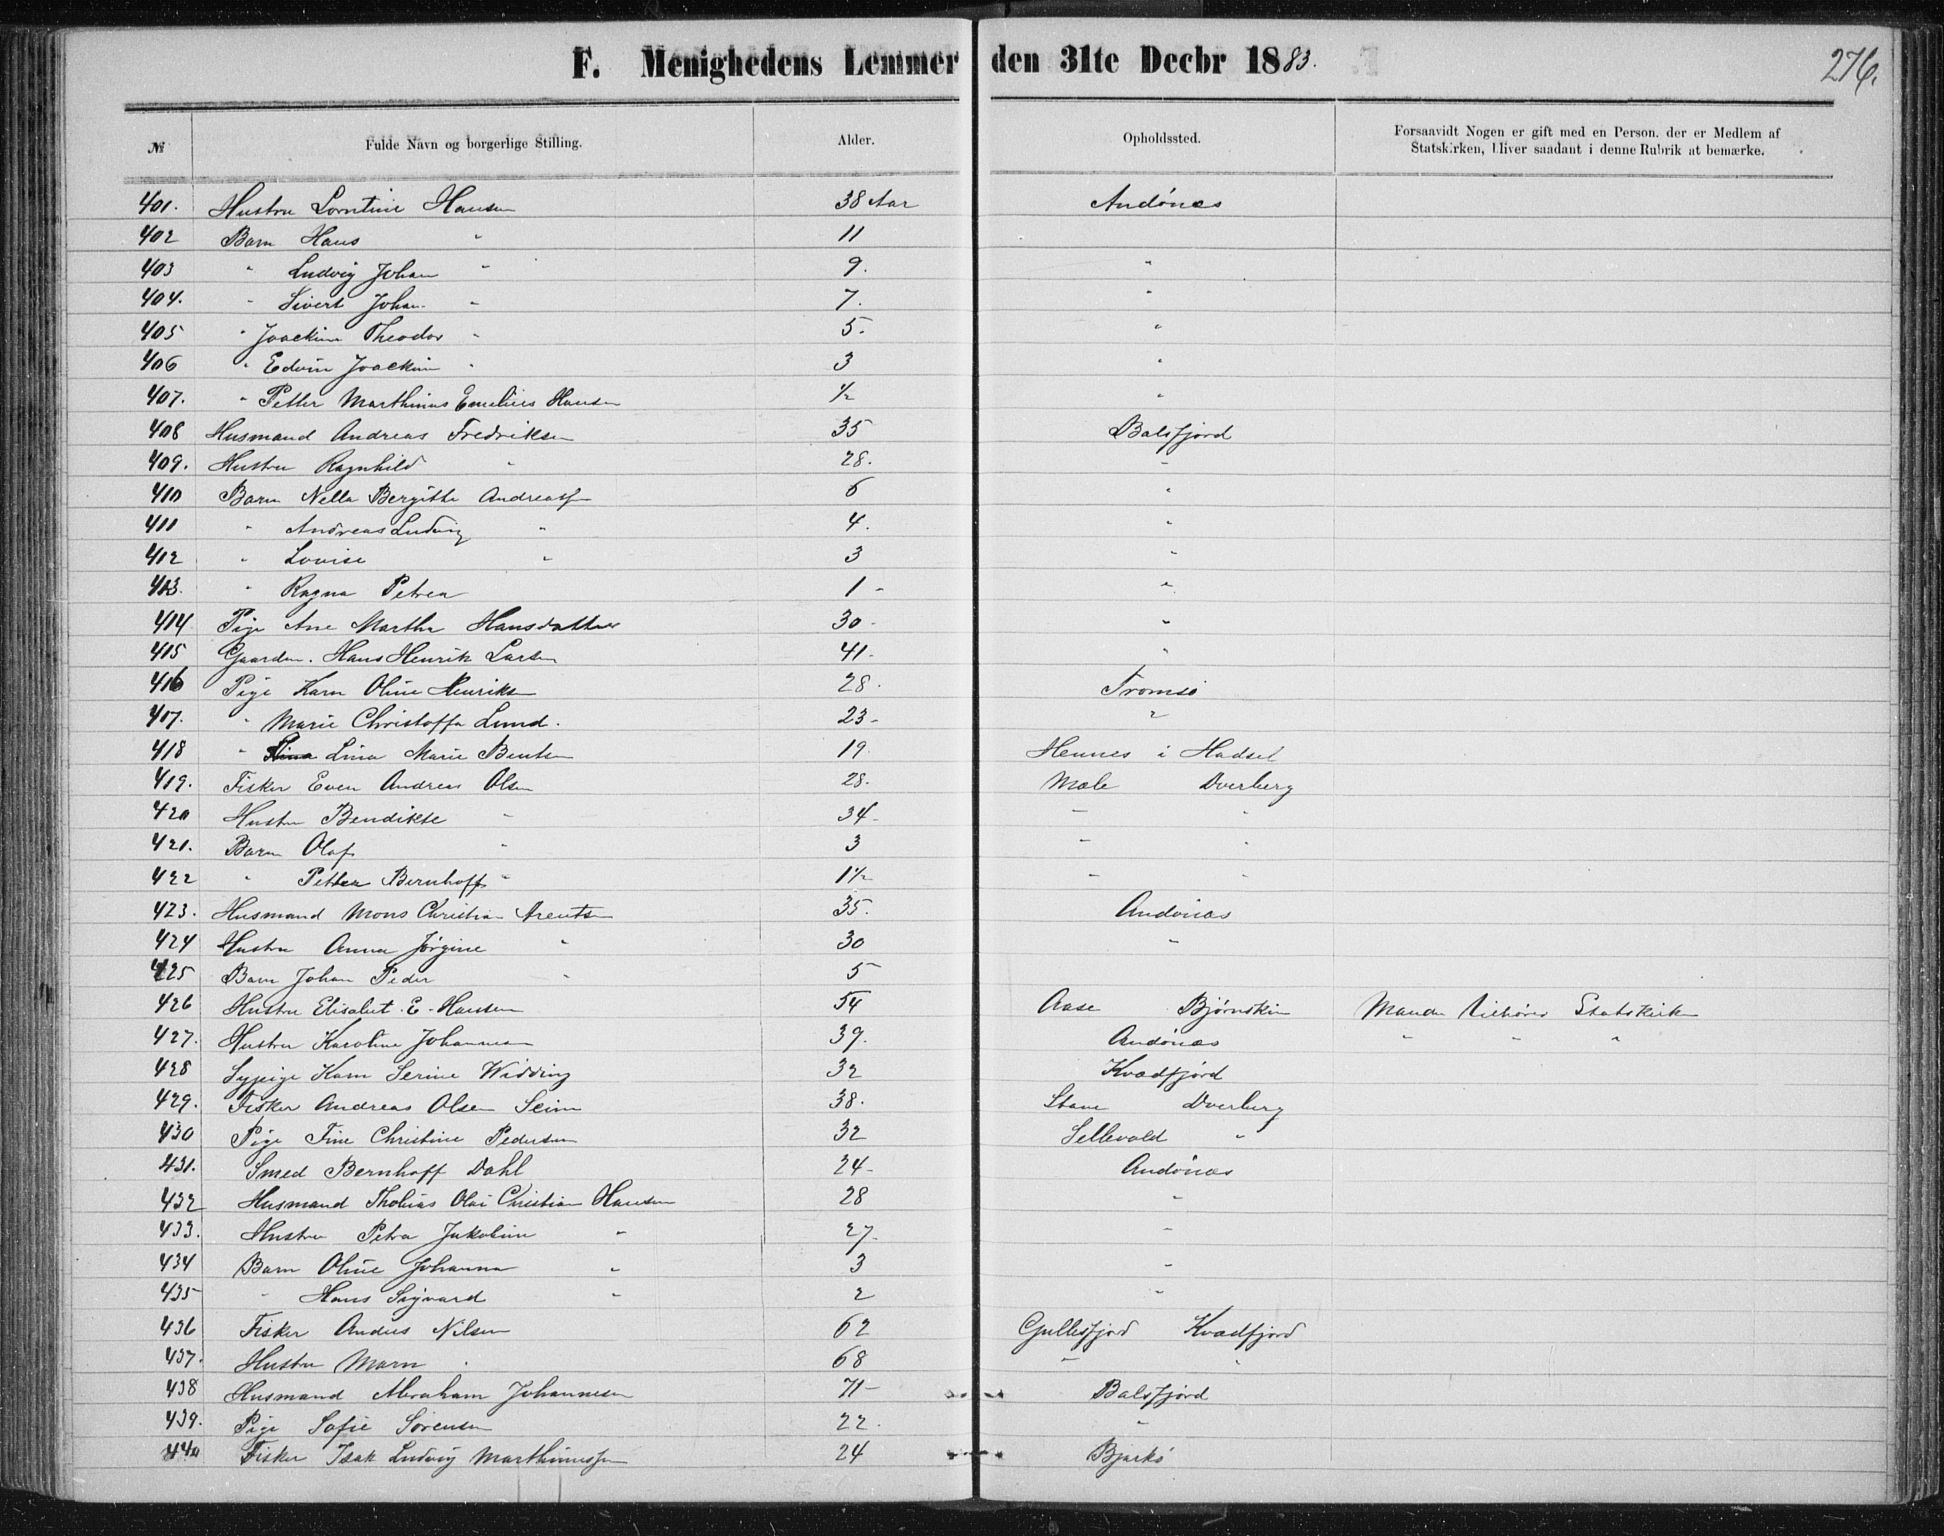 F. Menighedens Lemmer den 31te Decbr 1883.
276.
№ Fulde Navn og borgerlige Stilling. Alder. Opholdssted. Forsaavidt Nogen er gift med en Person, der er Medlem af Statskirken, bliver saadant i denne Rubrik at bemærke.
401. Hustru Lorntine Hansen 38 Aar Andönæs
402 Barn Hans " 11
403 " Ludvig Johan " 9. "
404. " Sivert Johan " 7. "
405 " Joackim Theodor " 5. "
406 " Edvin Joackim " 3 "
407. " Petter Marthinus Emelius Hansen ½ "
408 Husmand Andreas Fredriksen 35 Balsfjord
409. Hustru Ragnhild " 28. "
410 Barn Nella Bergitte Andreassen 6 "
411 " Andreas Ludvig " 4. "
412 " Lovise " 3 "
413. " Ragna Petrea 1 - "
414 Pige Ane Martha Hansdatter 30 - "
415 Gaardm. Hans Henrik Larsen 41 - "
416 Pige Karn Oline Henriksen 28. Tromsö
417. " Marie Christoffa Lund. 23 - "
418 " Lina Marie Bentsen 19. Hennes i Hadsel
419. Fisker Even Andreas Olsen 28. Mæle Dverberg
420 Hustru Bendikte " 34 - " "
421. Barn Olaf " 3 " "
422 " Petter Bernhoff " 1½ " "
423. Husmand Mons Christian Arentsen 35. Andönæs
424 Hustru Anna Jørgine " 30 "
425 Barn Johan Peder " 5
426 Hustru Elisabet E. Hansen 54 Aase Bjørnskin Manden tilhører Statskirken
427. Hustru Karoline Johannesen 39. Andönæs " " "
428 Sypige Karn Serine Widding 32 Kvædfjord
429. Fisker Andreas Olsen Seim 38. Stave Dverberg
430 Pige Fine Christine Pedersen 32 Sellevold "
431. Smed Bernhoff Dahl 24 - Andönæs
432 Husmand Tholias Olai Christian Hansen 28 "
433. Hustru Petra Jakobine " 27. "
434 Barn Oline Johanna " 3 "
435 " Hans Sigvard " 2 "
436 Fisker Anders Nilsen 62 Gullesfjord Kvædfjord
437. Hustru Marn " 68 " "
438 Husmand Abraham Johannesen 71 - Balsfjord
439. Pige Sofie Sörensen 22. "
440 Fisker Isak Ludvig Marthinussen 24 Bjarkö